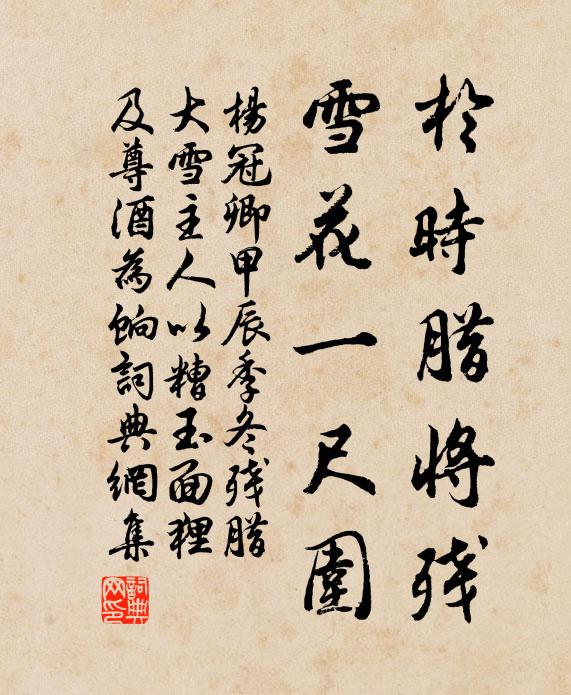 於時腊將残
雪花一尺圍
楊冠卿甲辰季冬残腊
大雪主人以糟玉面狸
及尊酒為餉詞典網集
詞典网印